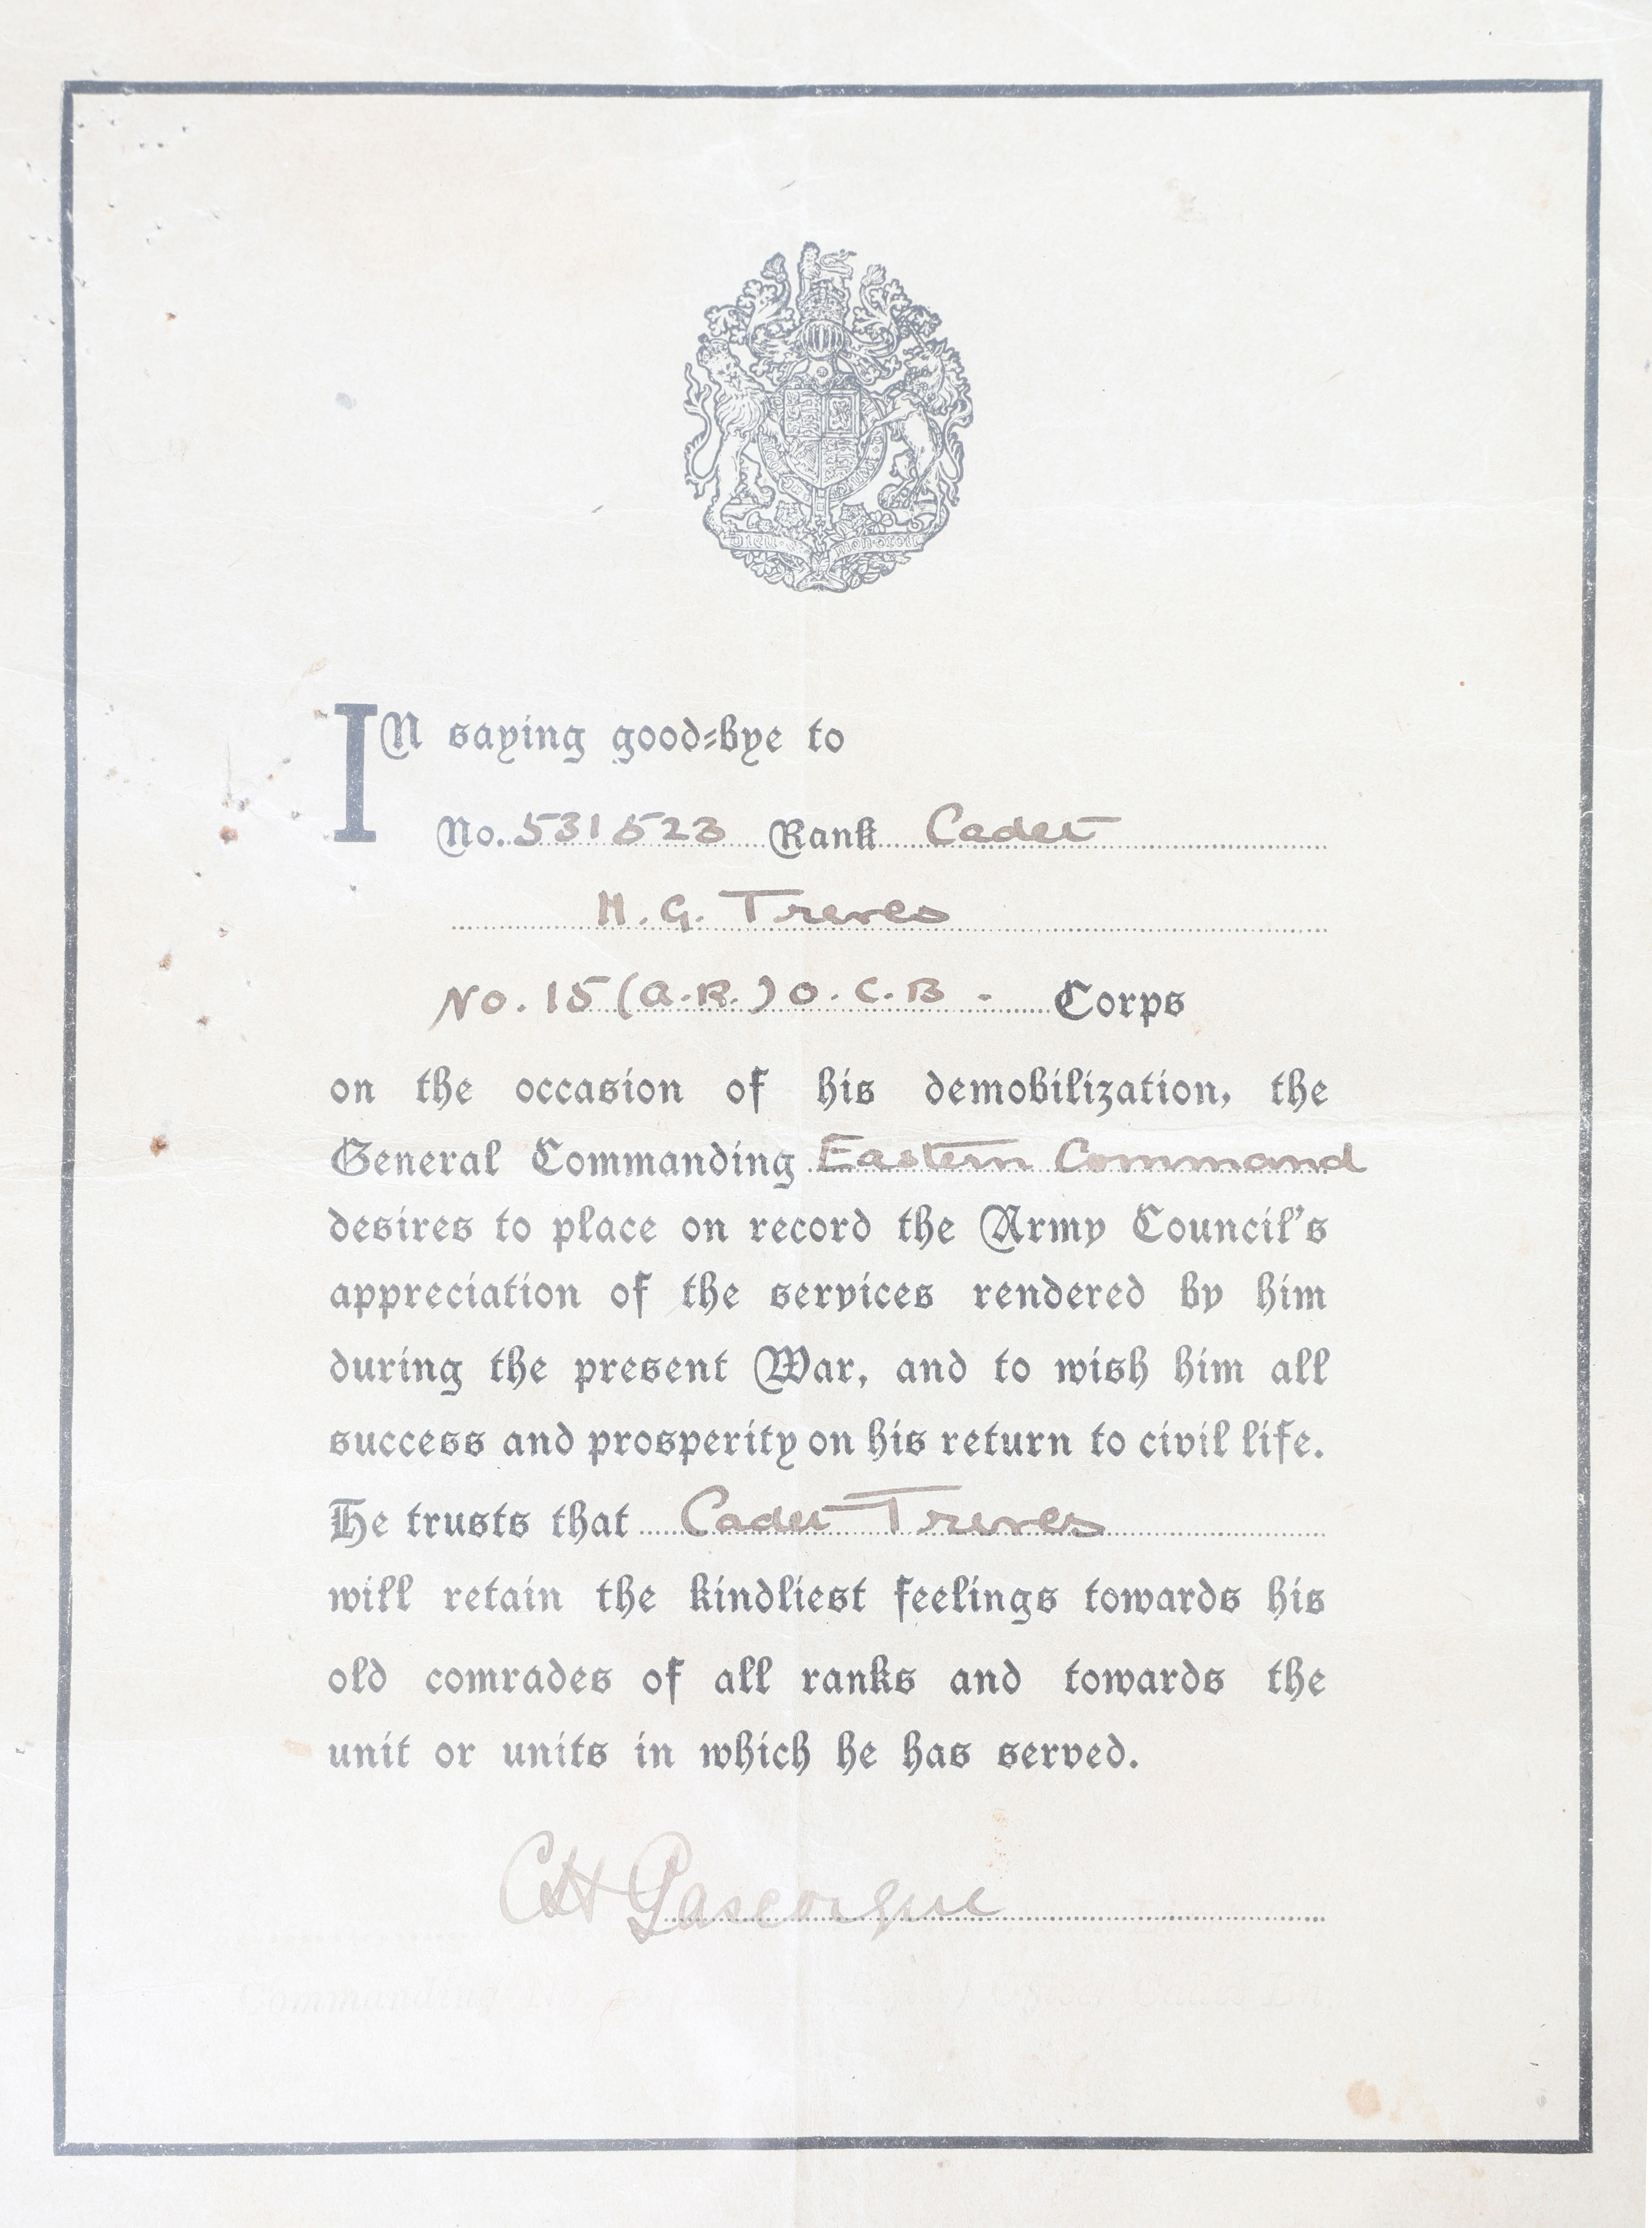 Dieu et mon droit
IN saying good-bye to
No. 531523 Rank Cadet
H. G. Treves
No. 15 (A.R.) O.C.B. Corps
on the occasion of his demobilization, the
General Commanding Eastern Command
desires to place on record the Army Council's
appreciation of the services rendered by him
during the present War, and to wish him all
success and prosperity on his return to civil life.
He trusts that Cadet Treves
will retain the kindliest feelings towards his
old comrades of all ranks and towards the
unit or units in which he has served.
CH Gascoigne
Commanding No. Officer Cadet Bn.